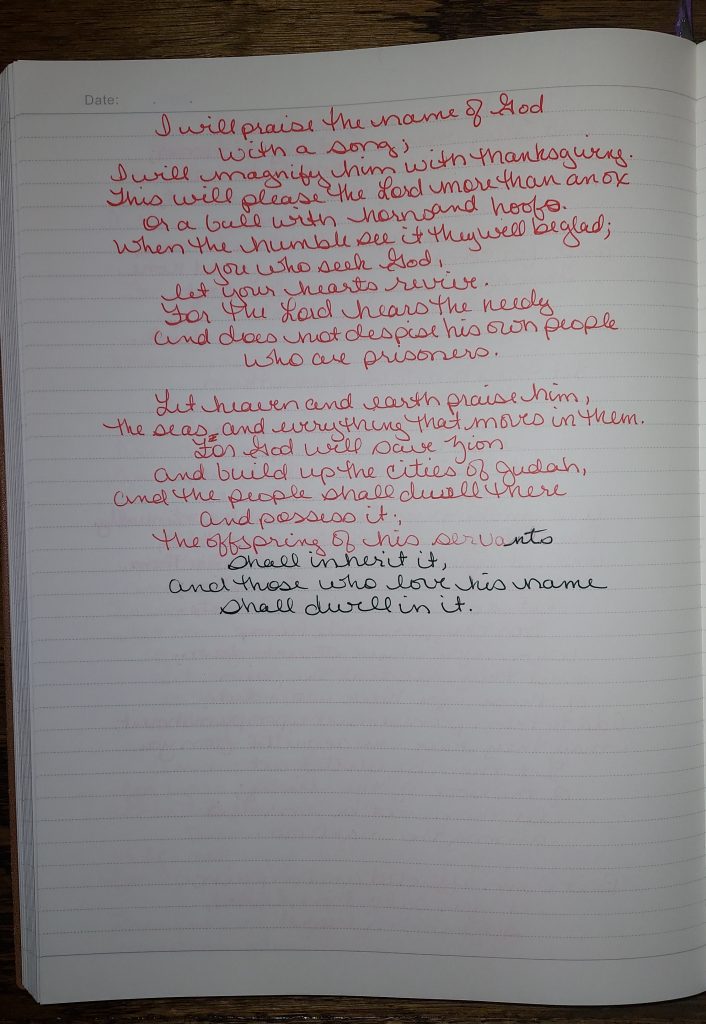 Date:
I will praise the name of God
with a song;
I will magnify him with thanksgiving.
This will please the Lord more than an ox
or a bull with horns and hoofs.
When the humble see it they will be glad;
you who seek God,
let your hearts revive.
For the Lord hears the needy
and does not despise his own people
who are prisoners.
Let heaven and earth praise him,
the seas and everything that moves in them.
For God will save Zion
and build up the cities of Judah,
and the people shall dwell there
and possess it;
the offspring of his servants
shall inherit it,
and those who love his name
shall dwell in it.